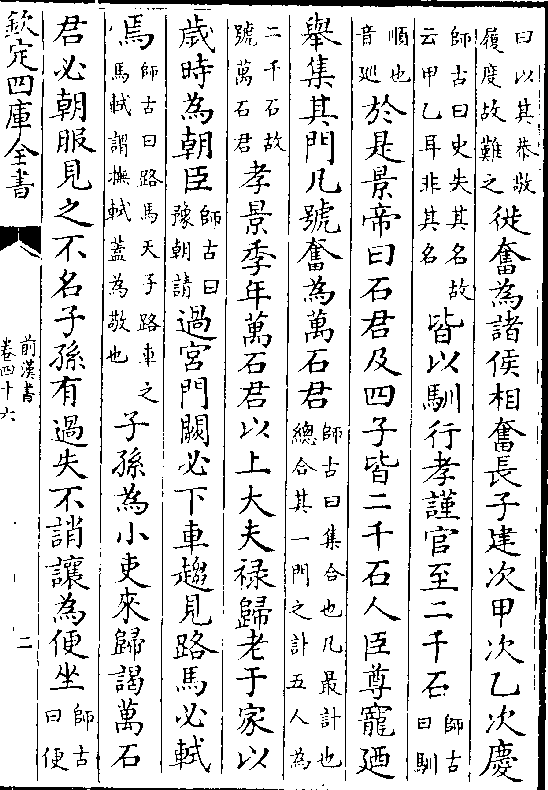 曰以其恭敬履度故難之徙奮為諸侯相奮長子建次甲次乙次慶
師古曰史失其名故云甲乙耳非其名皆以馴行孝謹官至二千石師古曰馴
順也音巡於是景帝曰石君及四子皆二千石人臣尊寵廼
舉集其門凡號奮為萬石君師古曰集合也凡最計也總合其一門之計五人為
二千石故號萬石君孝景季年萬石君以上大夫祿歸老于家以
歲時為朝臣師古曰豫朝請過宮門闕必下車趨見路馬必軾
焉師古曰路馬天子路車之馬軾謂撫軾蓋為敬也子孫為小吏來歸謁萬石
君必朝服見之不名子孫有過失不誚讓為便坐師古曰便
欽定四庫全書
前漢書
卷四十六
二